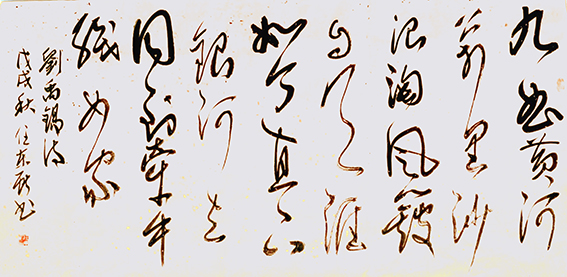 九曲黄河
萬里沙
浪淘風簸
自天涯
如今直上
銀河去
同到牽牛
織女家
劉禹錫詩
戊戌秋任东书